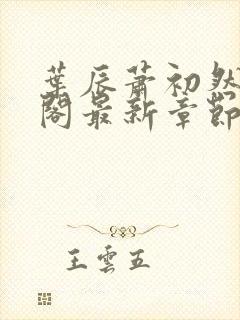 葉辰蕭初然
閣最新章節
王雲五